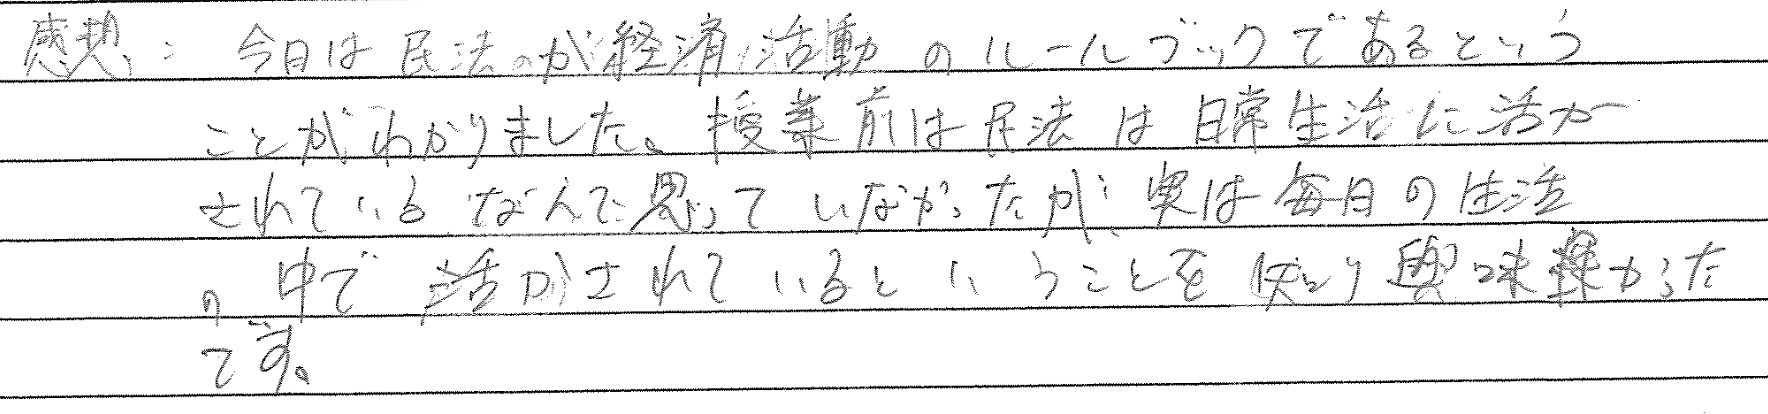 感想：今日は民法が経済活動のルールブックであるという
ことがわかりました。授業前は民法は日常生活に活か
されているなんて思っていなかったが実は毎日の生活
の中で活かされているということを知り興味深かった
です。